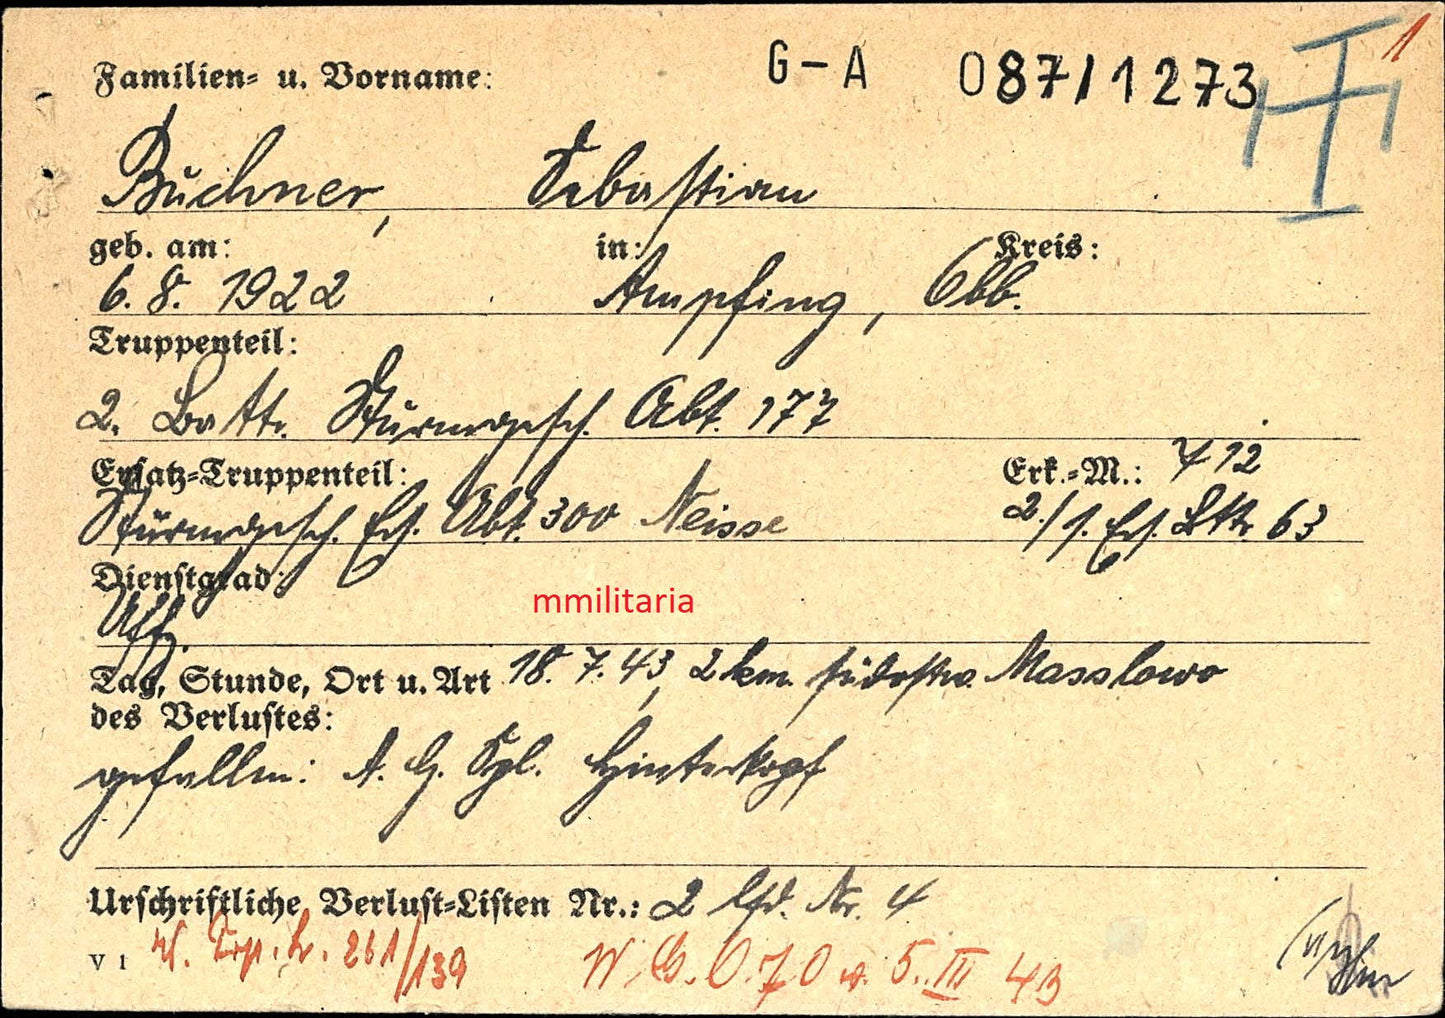 G-A 087/1273 1
Familien- u. Vorname:
Büchner, Sebastian
geb. am: in: Kreis:
6. 8. 1922 Ampfing, Obb.
Truppenteil:
2. Battr. Sturmgesch. Abt. 177
Ersatz-Truppenteil: Erk.-M.: 412
Sturmgesch. Ers. Abt. 300 Neisse 2./ s. Ers. Bttr. 63
Dienstgrad:
Uffz.
mmilitaria
Tag, Stunde, Ort u. Art 18. 7. 43, 2 km südostw. Masslowo
des Verlustes:
gefallen: A. G. Spl. Hinterkopf
Urschriftliche Verlust-Listen Nr.: 2 lfd. Nr. 4
V 1 261/139 5. III 43